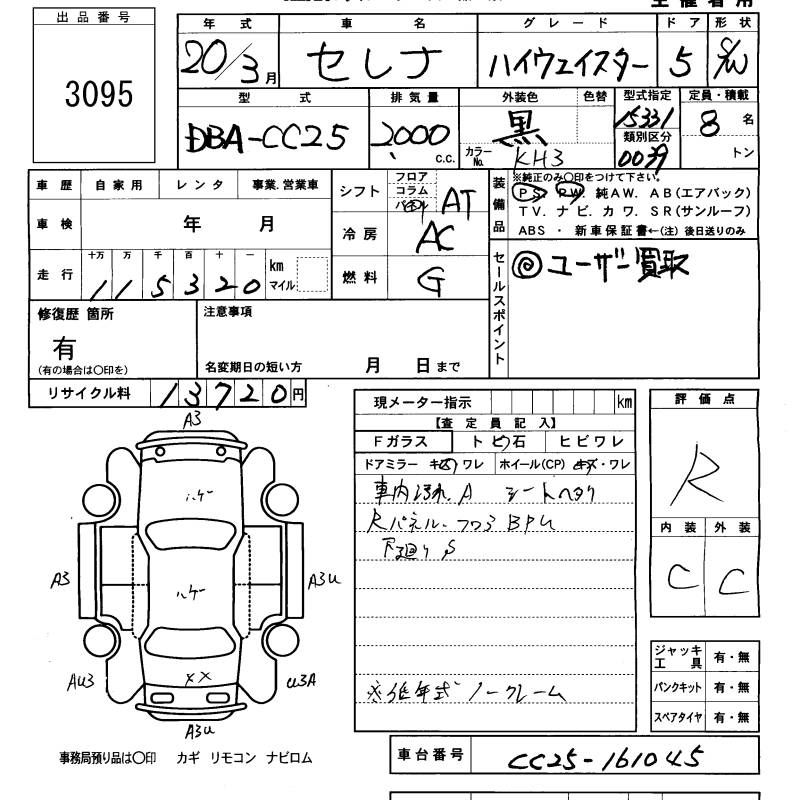 出品番号
3095
年式 車名 グレード ドア 形状
20/3月 セレナ ハイウェイスター 5 S/W
型式 排気量 外装色 色替 型式指定 定員・積載
DBA-CC25 2000 C.C. 黒 15331 8 名
カラーNo. KH3 類別区分 0039 トン
車歴 自家用 レンタ 事業.営業車
シフト フロア コラム パネル AT
装備品 ※純正のみ〇印をつけて下さい。
PS. PW. 純AW. AB(エアバック)
TV. ナビ. カワ. SR(サンルーフ)
ABS ・ 新車保証書←(注)後日送りのみ
車検 年 月
冷房 AC
走行 十万 万 千 百 十 一 km マイル
115320
燃料 G
セールスポイント ◎ユーザー買取
修復歴 箇所 注意事項
有
(有の場合は〇印を) 名変期日の短い方 月 日まで
リサイクル料 13720円
現メーター指示 km
【査定員記入】
Fガラス トビ石 ヒビワレ
ドアミラー キズワレ ホイール(CP) キズ・ワレ
車内汚れ A シートヘタリ
Rパネル・フロア BPU
下廻り S
※低年式 ノークレーム
評価点
R
内装 外装
C C
ジャッキ工具 有・無
パンクキット 有・無
スペアタイヤ 有・無
A3
ハゲ
A3 ハゲ A3U
AU3 XX U3A
A3U
事務局預り品は〇印 カギ リモコン ナビロム
車台番号 CC25-161045